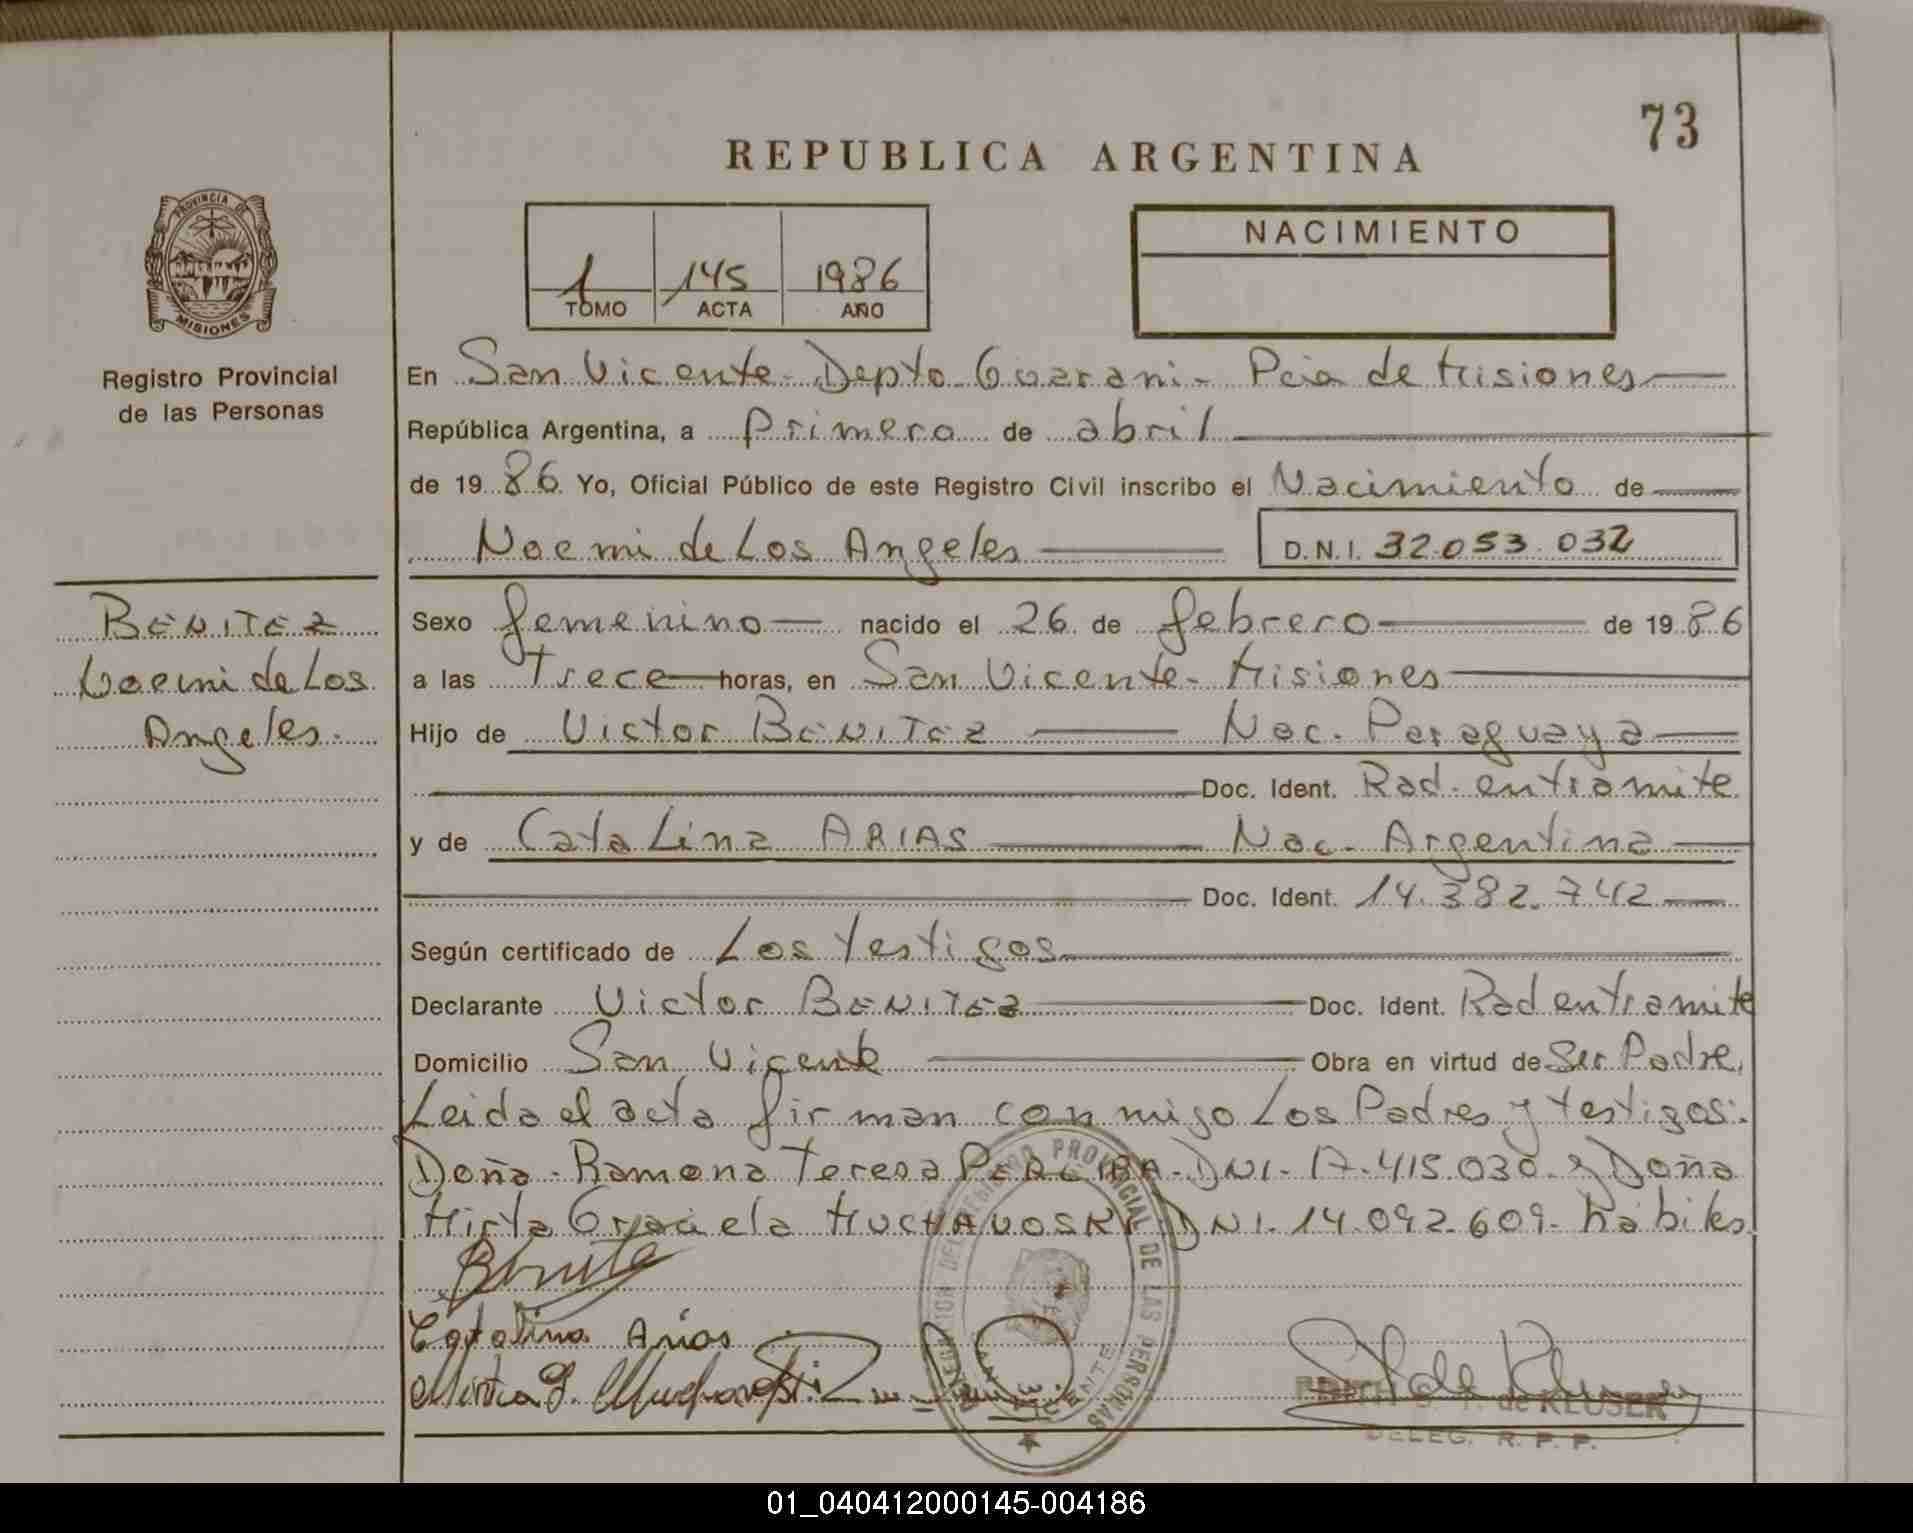 73
REPUBLICA ARGENTINA
PROVINCIA DE
MISIONES
Registro Provincial
de las Personas
1 145 1986
TOMO ACTA AÑO
NACIMIENTO
En San Vicente - Depto Guarani - Pcia de Misiones
República Argentina, a primero de abril
de 1986 Yo, Oficial Público de este Registro Civil inscribo el Nacimiento de
Noemi de Los Angeles D.N.I. 32.053.032
BENITEZ
Noemi de Los
Angeles.
Sexo femenino nacido el 26 de febrero de 1986
a las Trece horas, en San Vicente - Misiones
Hijo de Victor BENITEZ Nac. Paraguaya
Doc. Ident. Rad. en tramite
y de Catalina ARIAS Nac. Argentina
Doc. Ident. 14.382.742
Según certificado de Los testigos
Declarante Victor BENITEZ Doc. Ident. Rad en tramite
Domicilio San Vicente Obra en virtud de Ser Padre,
Leida el acta firman conmigo Los Padres y testigos:
Doña Ramona Teresa PEREIRA - DNI - 17.415.030 - y Doña
Mirta Graciela MUCHAVOSKI DNI. 14.092.609 - habiles
Benite
Catalina Arias
Mirta G. Muchavoski
REGISTRO PROVINCIAL DE LAS PERSONAS
de KLUSER
DELEG. R. P. P.
01_040412000145-004186